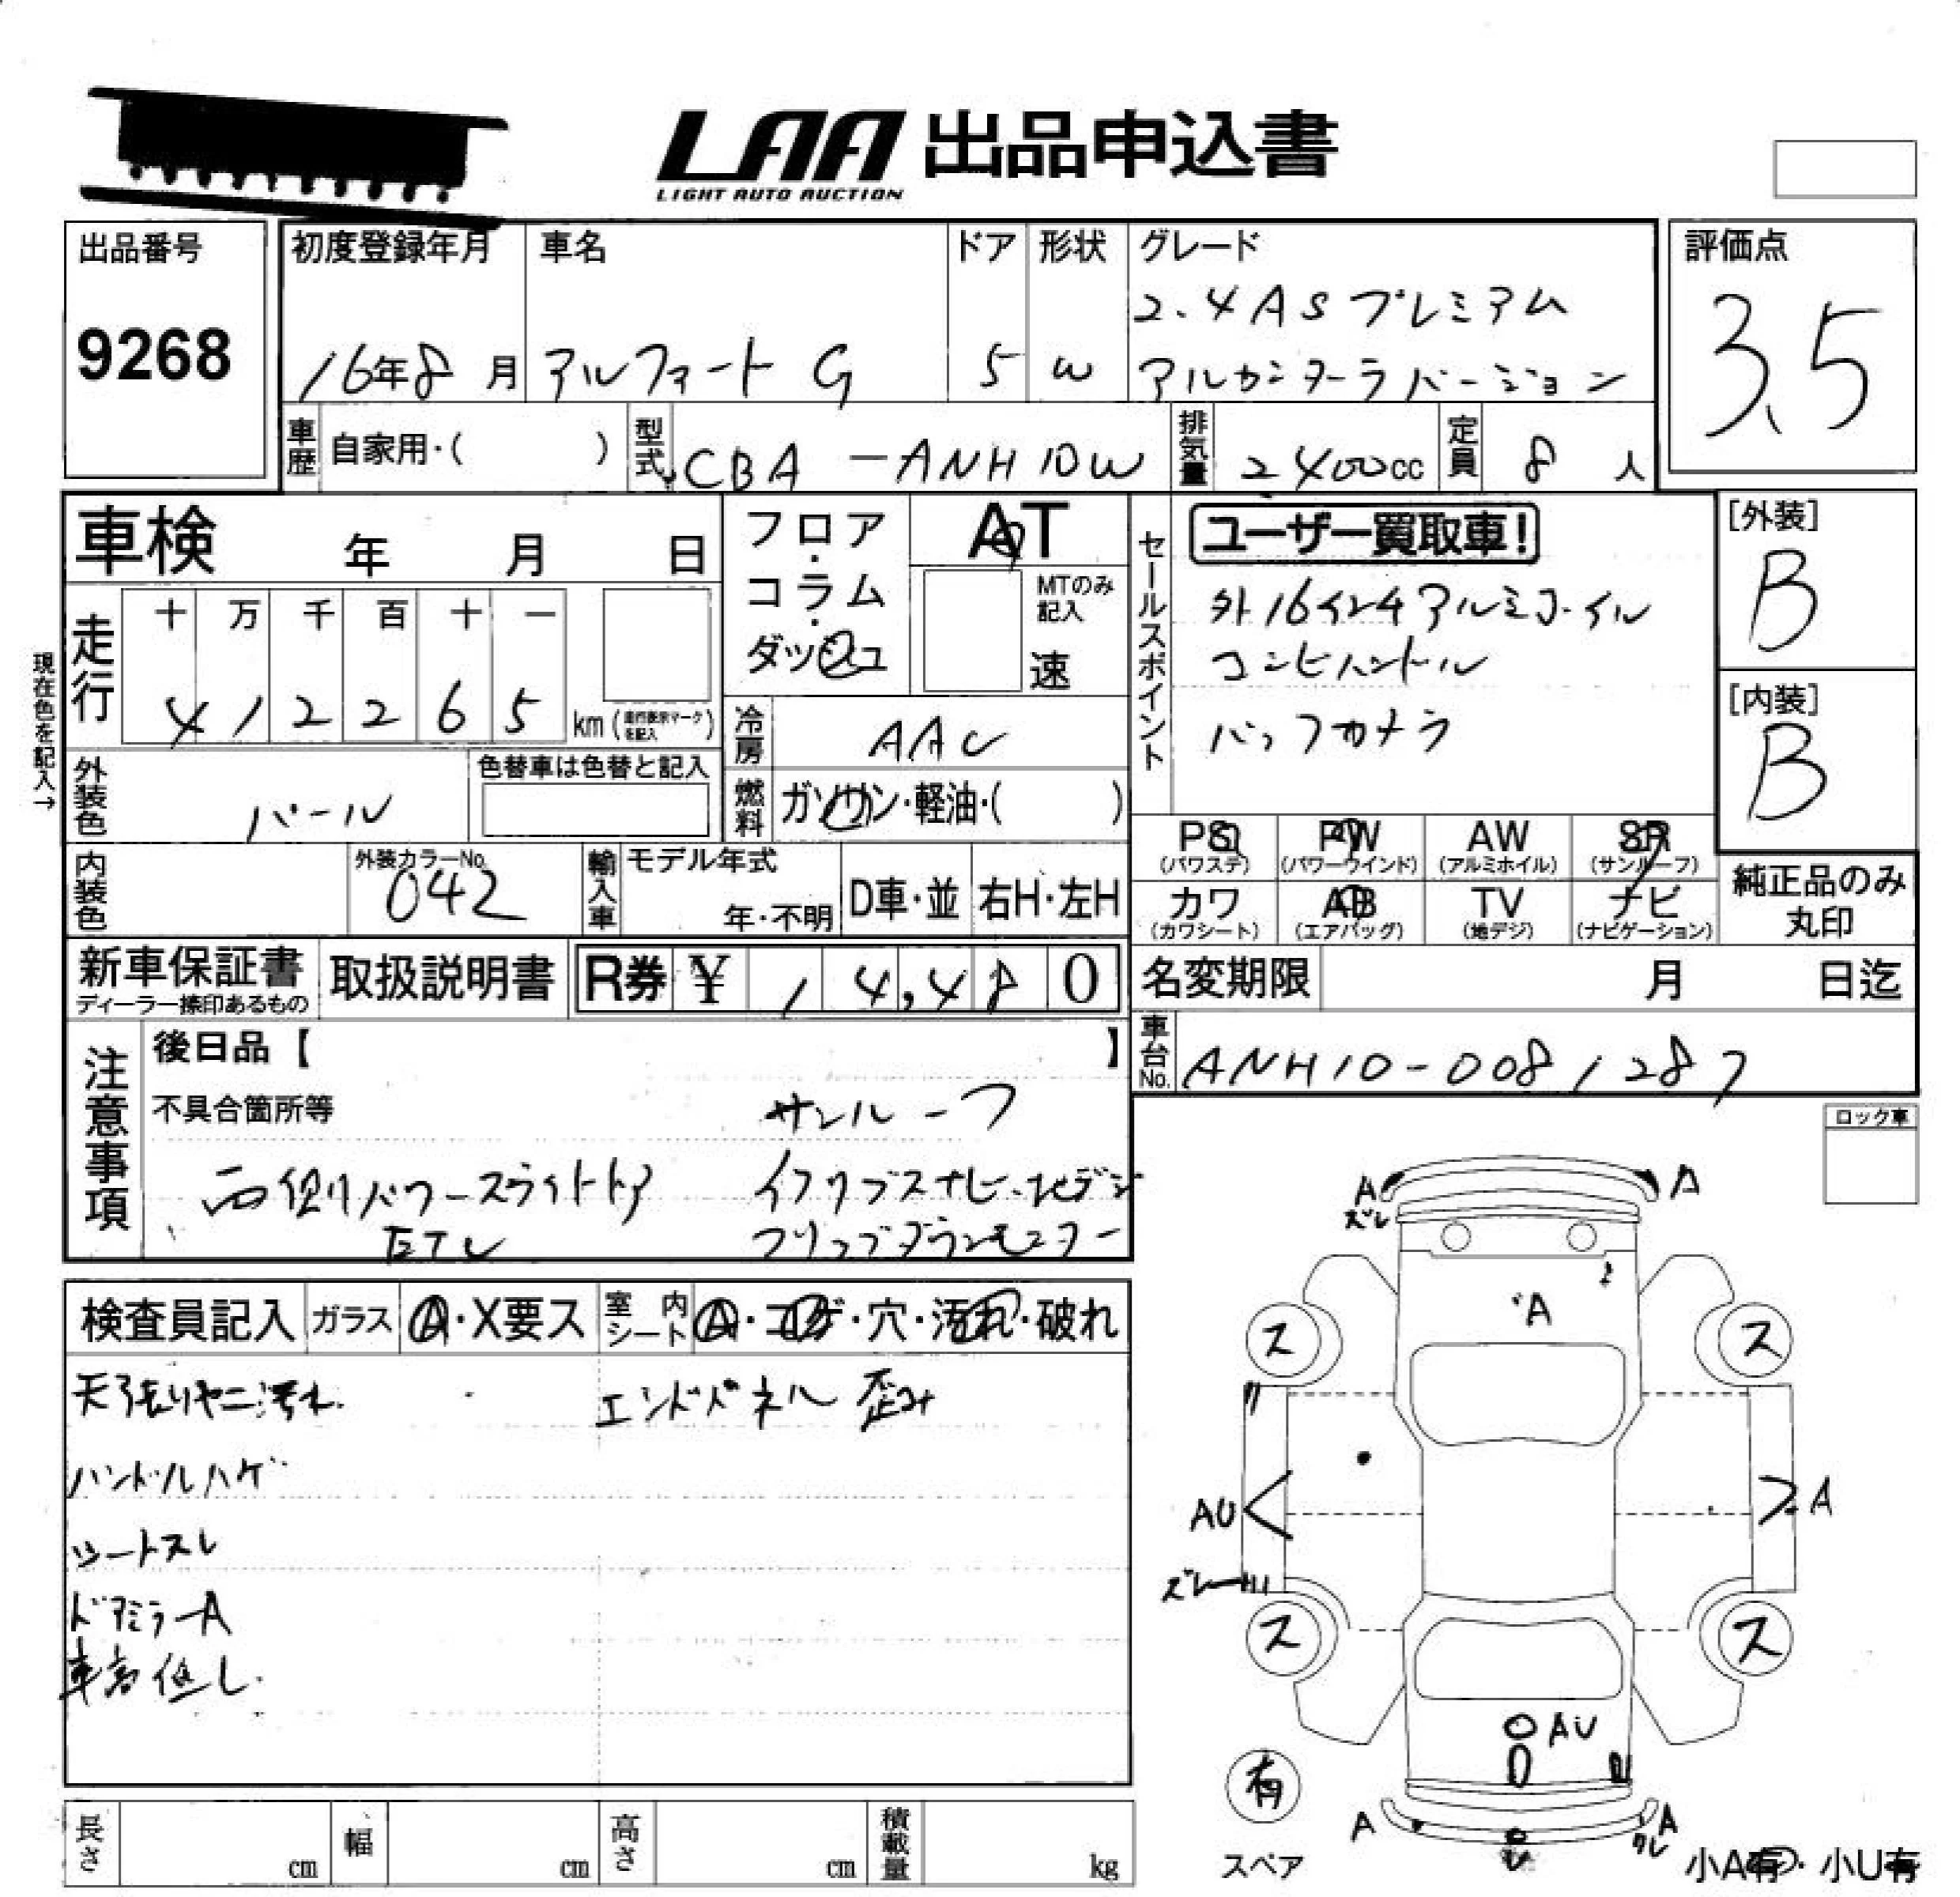 LAA 出品申込書
LIGHT AUTO AUCTION
出品番号
9268
初度登録年月
16年8月
車名
アルファード G
ドア
5
形状
W
グレード
2.4 AS プレミアム
アルカンターラバージョン
評価点
3.5
車歴 自家用・( )
型式 CBA -ANH10W
排気量 2400cc
定員 8人
車検 年 月 日
フロア・コラム・ダッシュ
AT
MTのみ記入
速
セールスポイント
ユーザー買取車!
外16インチアルミホイル
コンビハンドル
バックカメラ
[外装]
B
[内装]
B
現在色を記入→
走行
十 万 千 百 十 一
4 1 2 2 6 5 km (走行表示マークを記入)
冷房 AAC
燃料 ガソリン・軽油・( )
外装色 パール
色替車は色替と記入
内装色
外装カラーNo.
042
輸入車
モデル年式
年・不明
D車・並
右H・左H
PS (パワステ)
PW (パワーウインド)
AW (アルミホイル)
SR (サンルーフ)
カワ (カワシート)
AB (エアバッグ)
TV (地デジ)
ナビ (ナビゲーション)
純正品のみ丸印
新車保証書
ディーラー捺印あるもの
取扱説明書
R券 ¥ 14,480
名変期限 月 日迄
車台No. ANH10-0081287
注意事項
後日品【 】
不具合箇所等
サンルーフ
両側パワースライドドア
イクリプスナビ・地デジ
ETC
フリップダウンモニター
ロック車
検査員記入
ガラス A・X要ス
室内シート A・コゲ・穴・汚れ・破れ
天張りヤニ汚れ
エンドパネル 歪み
ハンドルハゲ
シートスレ
ドアミラーA
車高低し
A
ズレ
A
A
ス
ス
AU
A
ズレ
ス
ス
AU
有
スペア
A
A
ワレ
小A有・小U有
長さ cm
幅 cm
高さ cm
積載量 kg